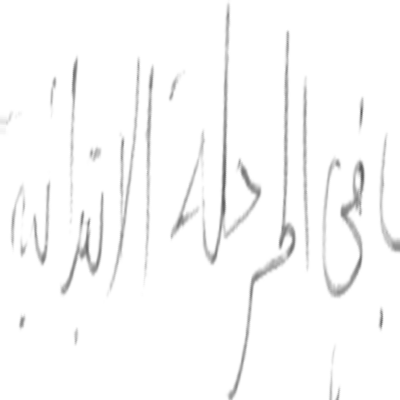 في المرحلة الابتدائية